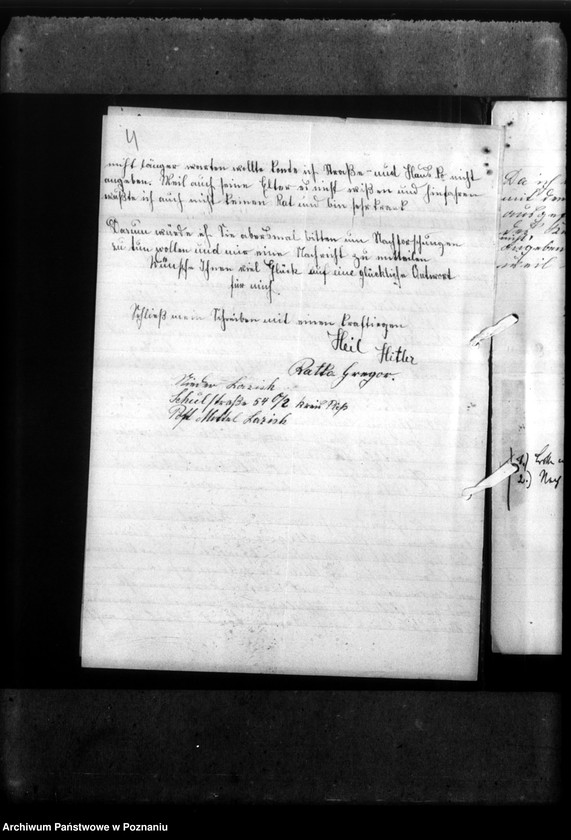 4
nicht länger warten wollte konte ich Straße und Haus № nicht
angeben. Weil auch seine Elter es nicht wißen und hinfahren
wüßte ich auch nicht keinen Rat und bin sehr krank
Darum würde ich Sie abersmal bitten um Nachforschungen
zu tun wollen und mir eine Nachricht zu mitteilen
Wünsche Ihnen viel Glück auf eine glückliche Antwort
für mich.
Schließ mein Schreiben mit einen kraftiegen
Heil Hitler
Ratka Gregor.
Nieder Lazisk
Schulstraße 54 Kreis Pleß
Post Mittel Lazisk
Da ich
und den
ausge
angeben
weil
1.)
2.) Nach
Archiwum Państwowe w Poznaniu